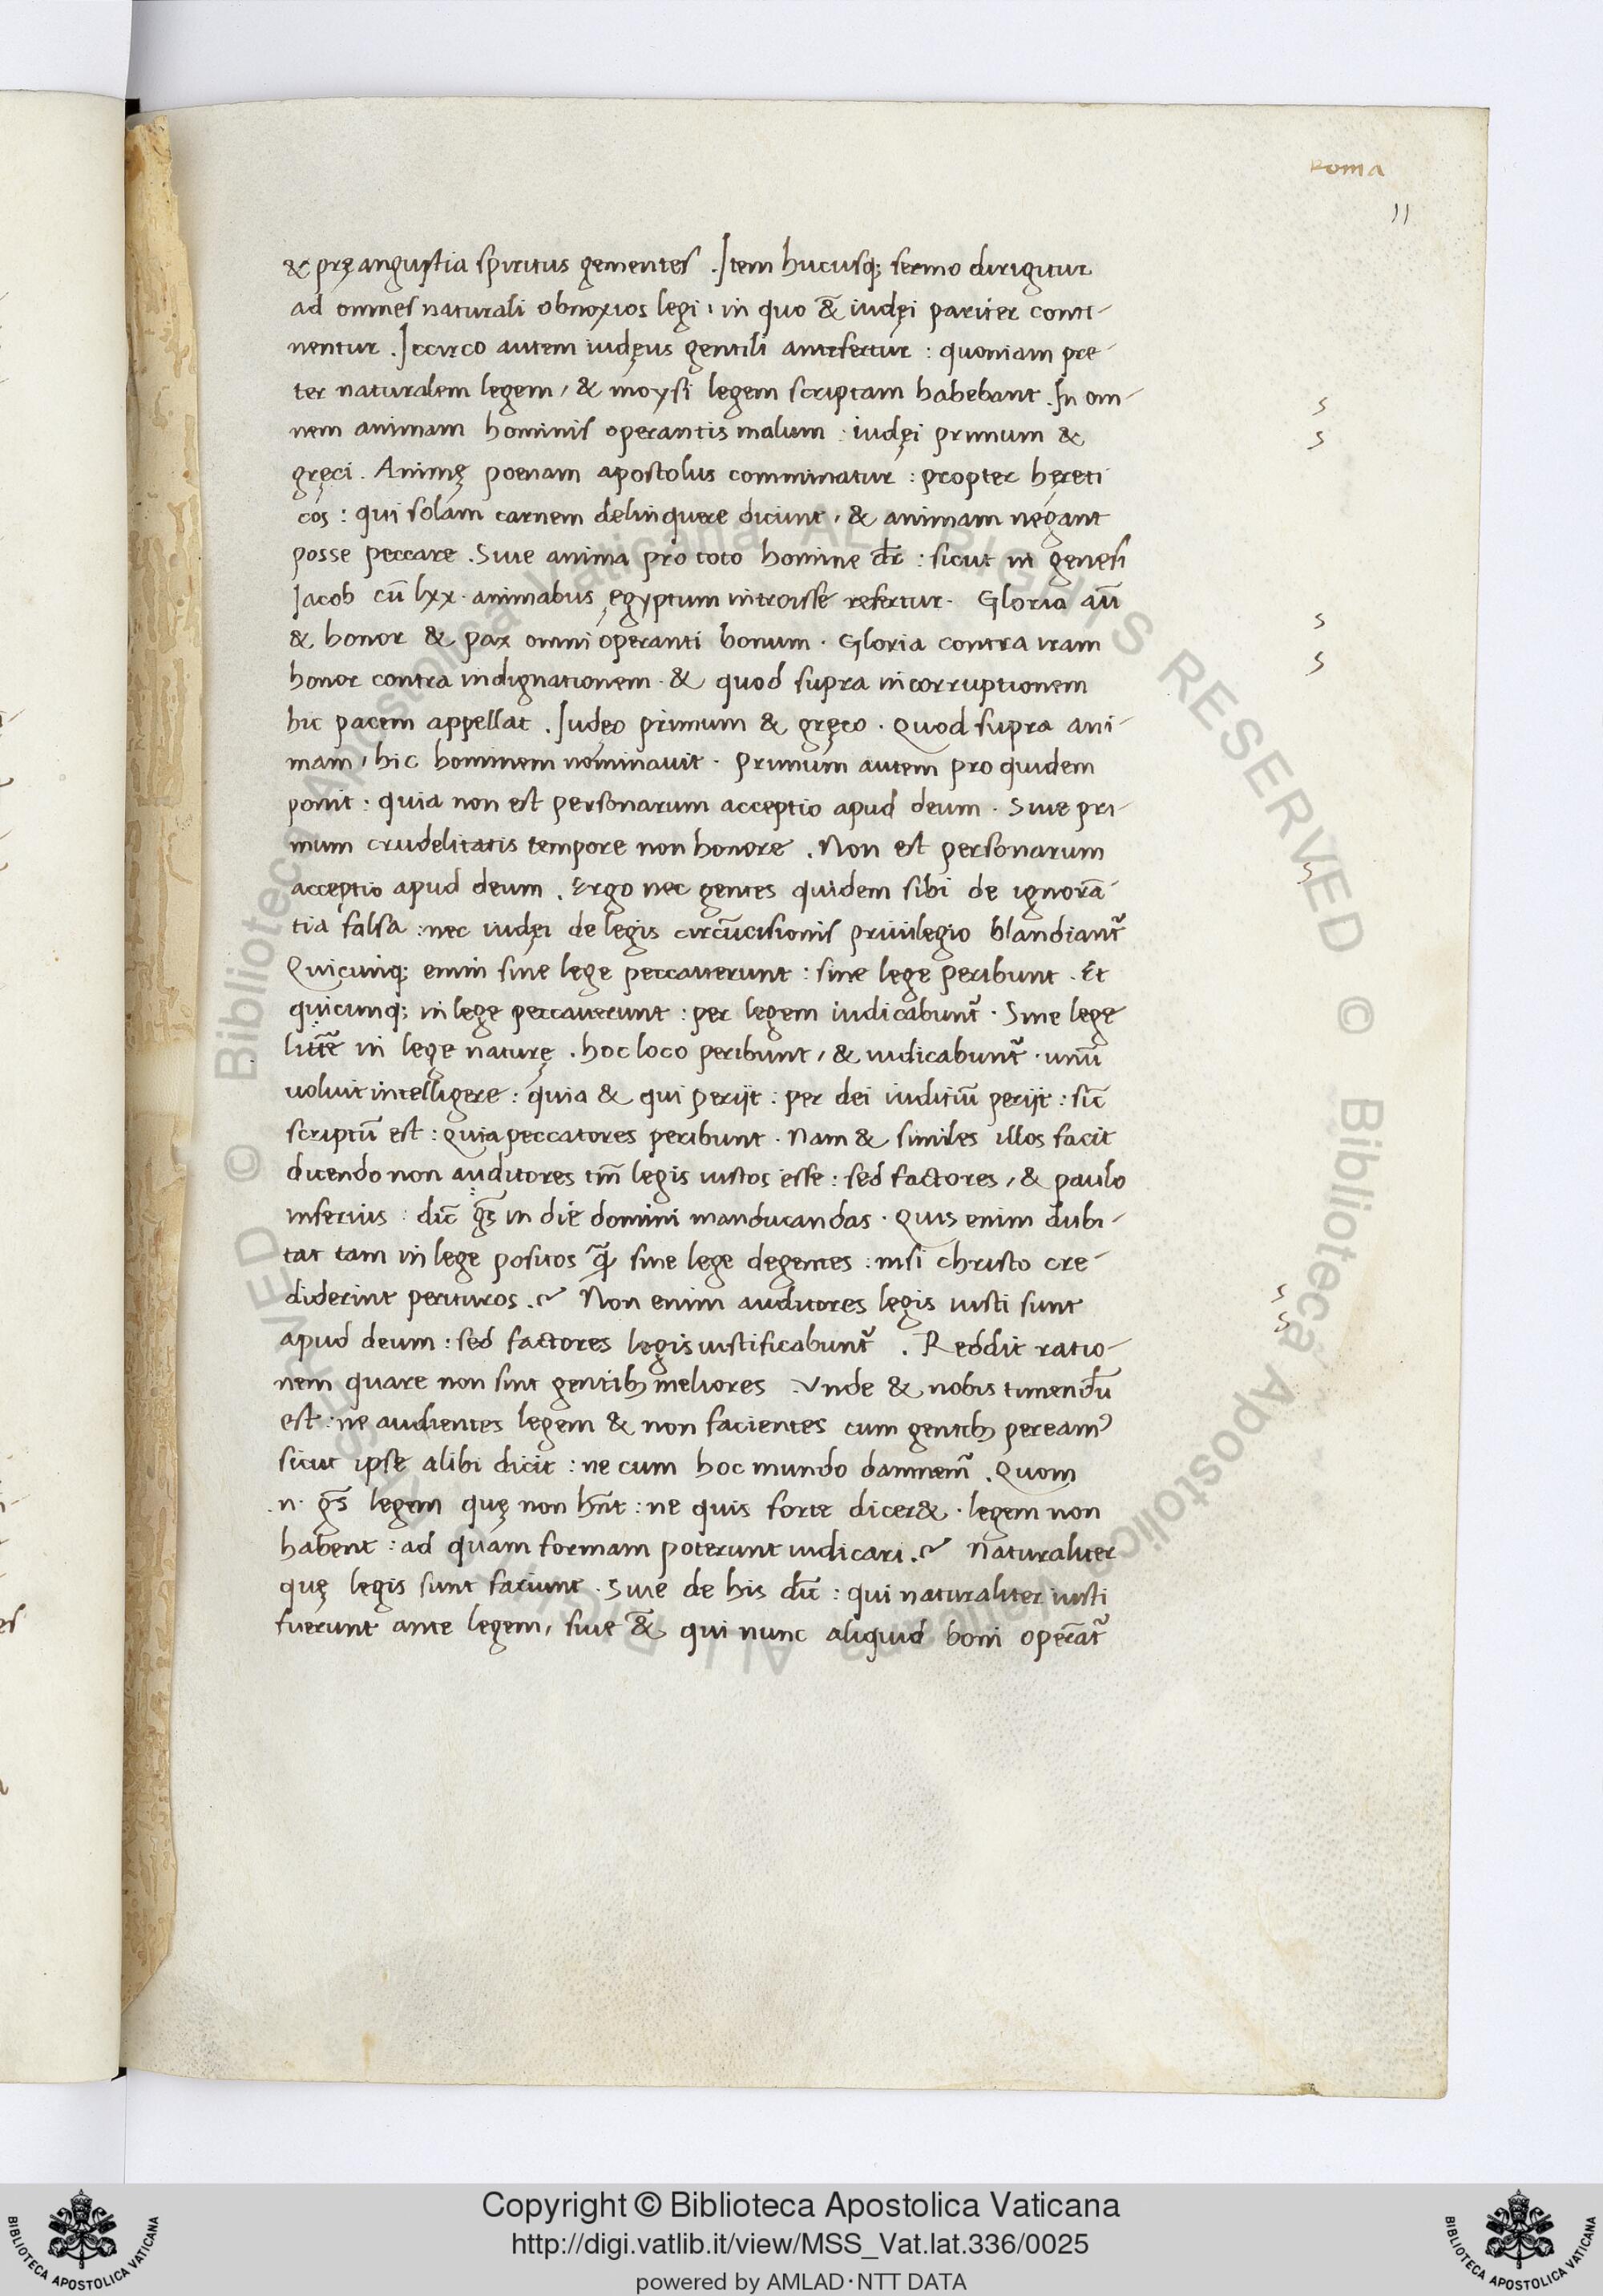 Roma
11
& pręangustia spiritus gementes . Item hucusq; sermo dirigitur
ad omnes naturali obnoxios legi, in quo & iudęi pariter conti-
nentur . Iccirco autem iudęus gentili antefertur : quoniam pre-
ter naturalem legem, & moysi legem scriptam habebant . In om-
nem animam hominis operantis malum : iudęi primum &
gręci . Animę poenam apostolus comminatur : propter hęreti
cos : qui solam carnem delinquere dicunt, & animam negant
posse peccare . Siue anima pro toto homine dr̄ : sicut in genesi
Jacob cū lxx . animabus ęgyptum introisse refertur . Gloria aū
& honor & pax omni operanti bonum . Gloria contra iram
honor contra indignationem . & quod supra incorruptionem
hic pacem appellat . Iudęo primum & gręco . Quod supra ani-
mam, hic hominem nominauit . Primum autem pro quidem
ponit : quia non est personarum acceptio apud deum . Siue pri-
mum crudelitatis tempore non honore . Non est personarum
acceptio apud deum . Ergo nec gentes quidem sibi de ignorā-
tia falsa : nec iudęi de legis circūcisionis priuilegio blandiant᷑
Quicunq; enim sine lege peccauerunt : sine lege peribunt . Et
quicunq; in lege peccauerunt : per legem iudicabunt᷑ . Sine lege
litt̄e in lege naturę . hoc loco peribunt, & iudicabunt᷑ . unū
uoluit intelligere : quia & qui perijt : per dei iuditiū perijt : sic̄
scriptū est : Quia peccatores peribunt . Nam & similes illos facit
dicendo non auditores tm̄ legis iustos esse : sed factores, & paulo
inferius : dic̄ gs̄ in die domini manducandas . Quis enim dubi-
tat tam in lege positos q̃ sine lege degentes : nisi christo cre-
diderint perituros . Non enim auditores legis iusti sunt
apud deum : sed factores legis iustificabunt᷑ . Reddit ratio-
nem quare non sint gentib; meliores . Vnde & nobis timendū
est : ne audientes legem & non facientes cum gentib; peream᷒
sicut ipse alibi dicit : ne cum hoc mundo damnem᷑ . Quom
.n. gs̄ legem quę non hn̄t : ne quis forte dicer& . legem non
habent : ad quam formam poterunt iudicari . Naturaliter
quę legis sunt faciunt . Siue de his dic̄ : qui naturaliter iusti
fuerunt ante legem, siue & qui nunc aliquid boni operāt᷑
Copyright © Biblioteca Apostolica Vaticana
http://digi.vatlib.it/view/MSS_Vat.lat.336/0025
powered by AMLAD·NTT DATA